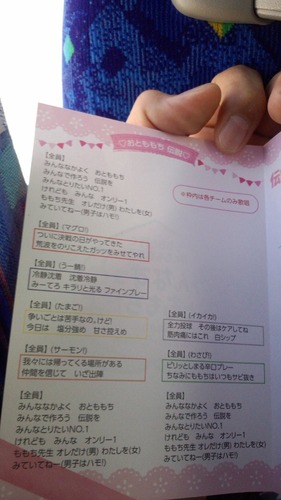 ♡おとももち 伝説♡
※枠内は各チームのみ歌唱
【全員】
みんななかよく おとももち
みんなで作ろう 伝説を
みんなとりたいNO.1
けれども みんな オンリー1
ももち先生 オレだけ(男) わたしを(女)
みていてねー(男子はハモ!)
【全員】(マグロ!)
ついに決戦の日がやってきた
荒波をのりこえたガッツをみせてやれ
【全員】(うー鯛!)
冷静沈着 沈着冷静
みーてろ キラリと光る ファインプレー
【全員】(たまご!)
争いごとは苦手なの。けど!
今日は 塩分強め 甘さ控えめ
【全員】(サーモン!)
我々には帰ってくる場所がある
仲間を信じて いざ出陣
【全員】
みんななかよく おとももち
みんなで作ろう 伝説を
みんなとりたいNO.1
けれども みんな オンリー1
ももち先生 オレだけ(男) わたしを(女)
みていてねー(男子はハモ!)
【全員】(イカイカ!)
全力投球 その後はケアしてね
筋肉痛にはこれ 白シップ
【全員】(わさび!)
ピリッとしまる辛口プレー
ちなみにももちはいつもサビ抜き
【全員】
みんななかよく おとももち
みんなで作ろう 伝説を
みんなとりたいNO.1
けれども みんな オンリー1
ももち先生 オレだけ(男) わたしを(女)
みていてねー(男子はハモ!)
伝